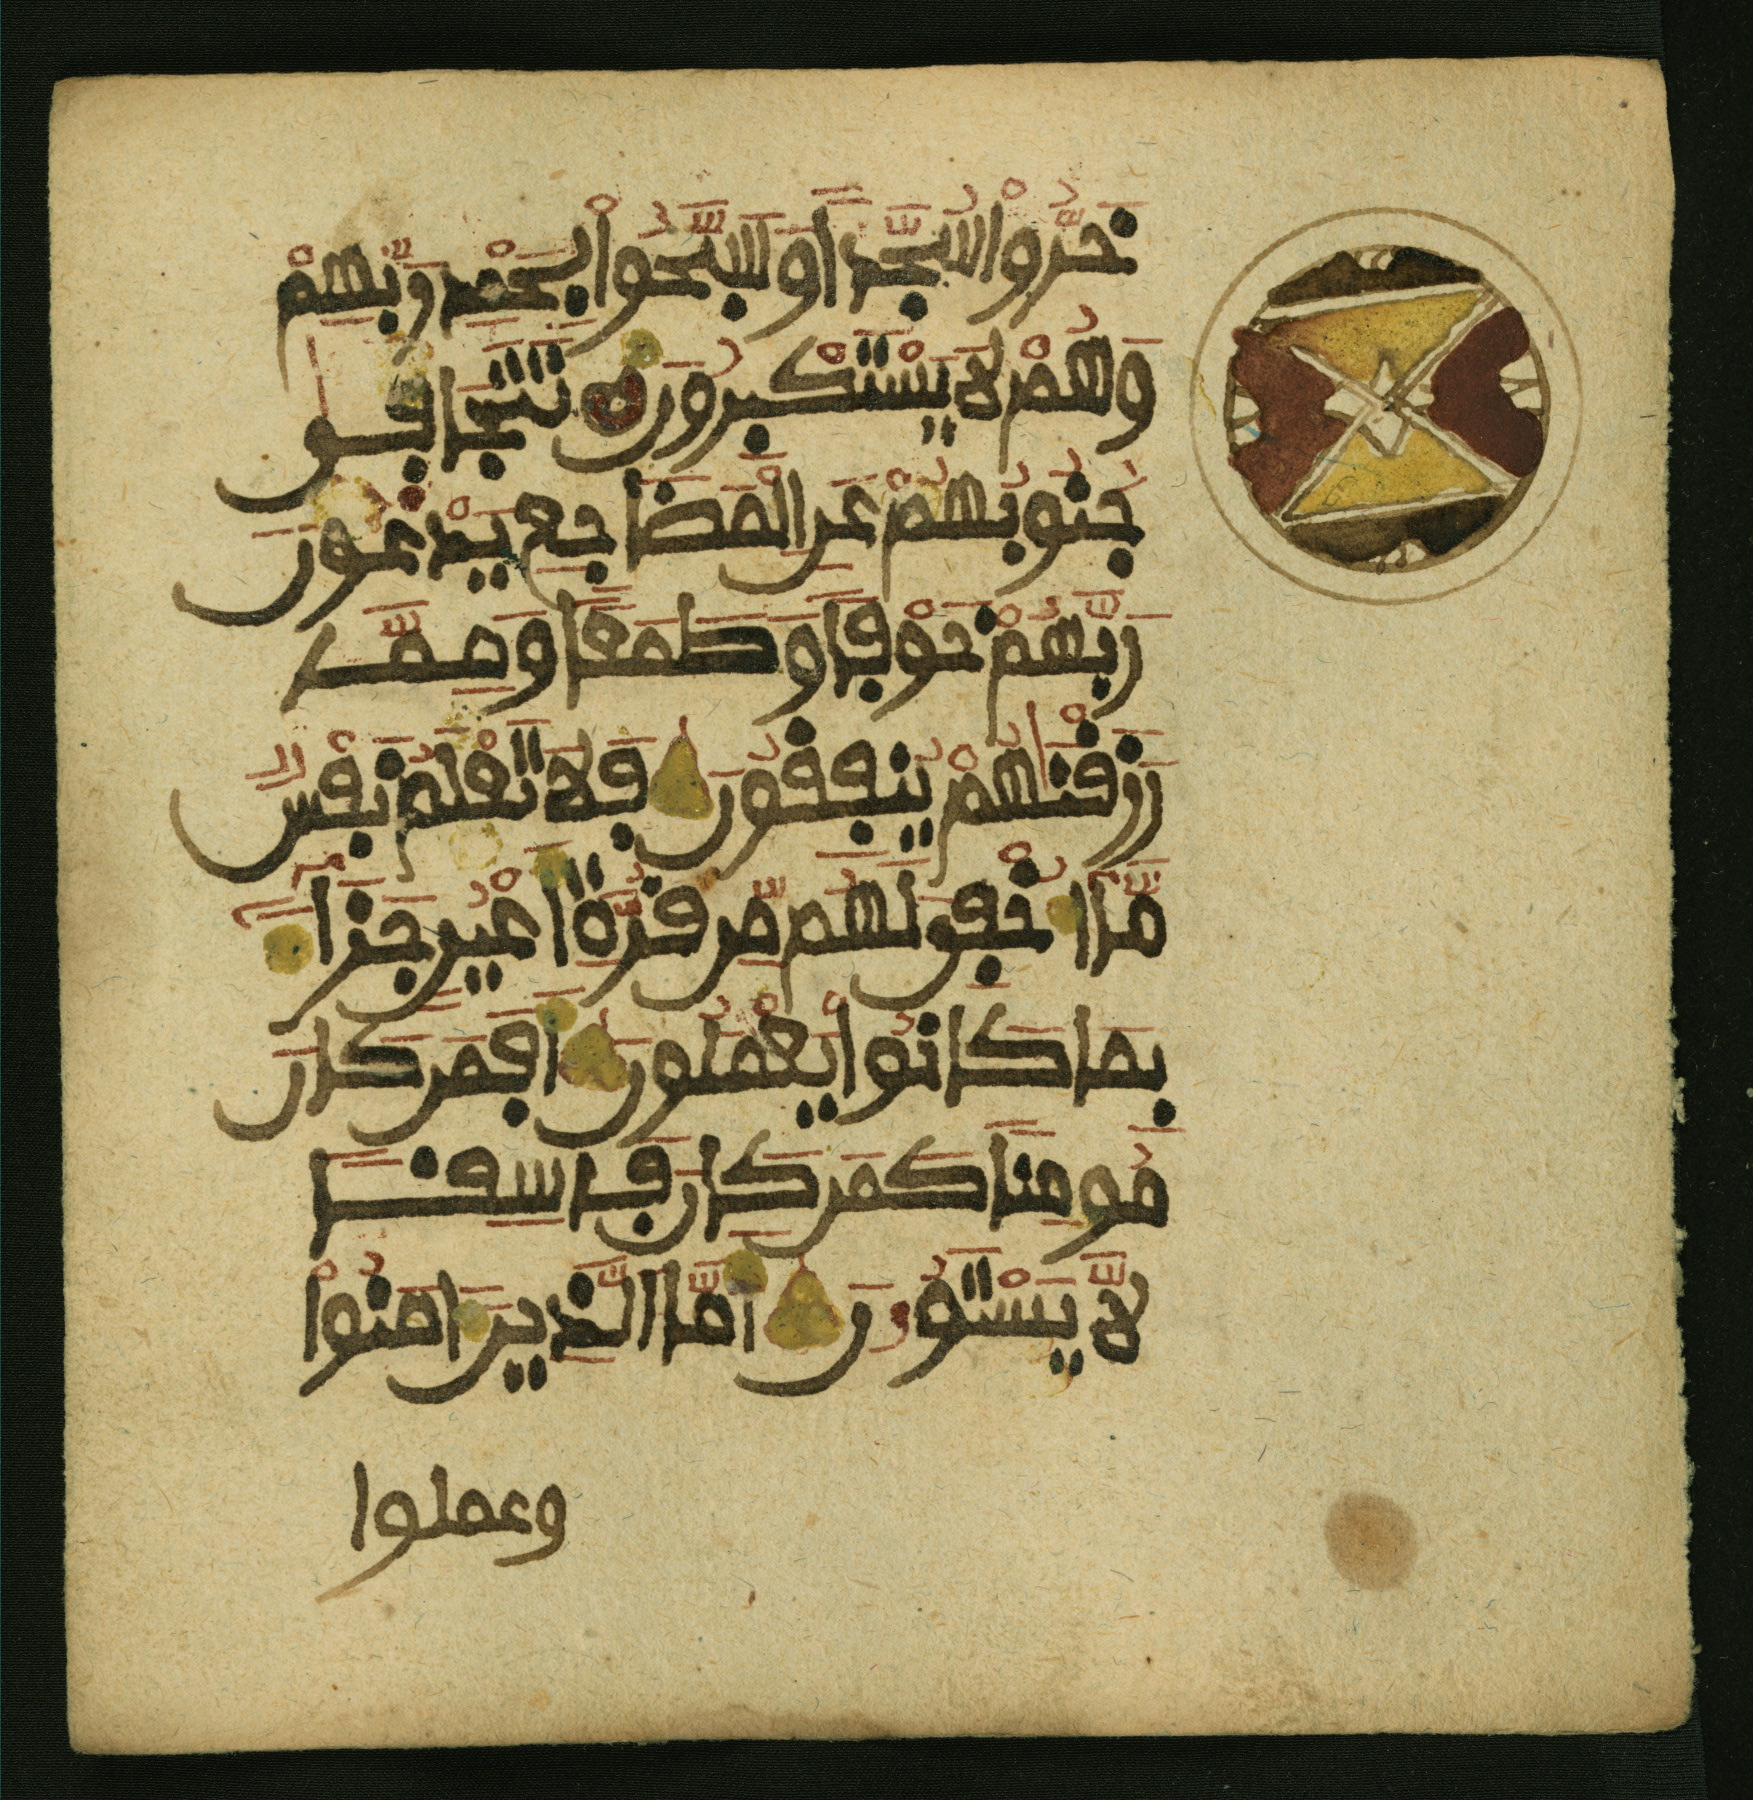 خَرُّواْ سُجَّدٗا وَسَبَّحُواْ بِحَمۡدِ رَبِّهِمۡ
وَهُمۡ لَا يَسۡتَكۡبِرُونَ تَتَجَافَىٰ
جُنُوبُهُمۡ عَنِ الۡمَضَاجِعِ يَدۡعُونَ
رَبَّهُمۡ خَوۡفٗا وَطَمَعٗا وَمِمَّا
رَزَقۡنَٰهُمۡ يُنفِقُونَ فَلَا تَعۡلَمُ نَفۡسٞ
مَّا أُخۡفِيَ لَهُم مِّن قُرَّةِ أَعۡيُنٖ جَزَآءَۢ
بِمَا كَانُواْ يَعۡمَلُونَ أَفَمَن كَانَ
مُومِنٗا كَمَن كَانَ فَاسِقٗا
لَّا يَسۡتَوُۥنَ أَمَّا الَّذِينَ ءَامَنُواْ
وعملوا